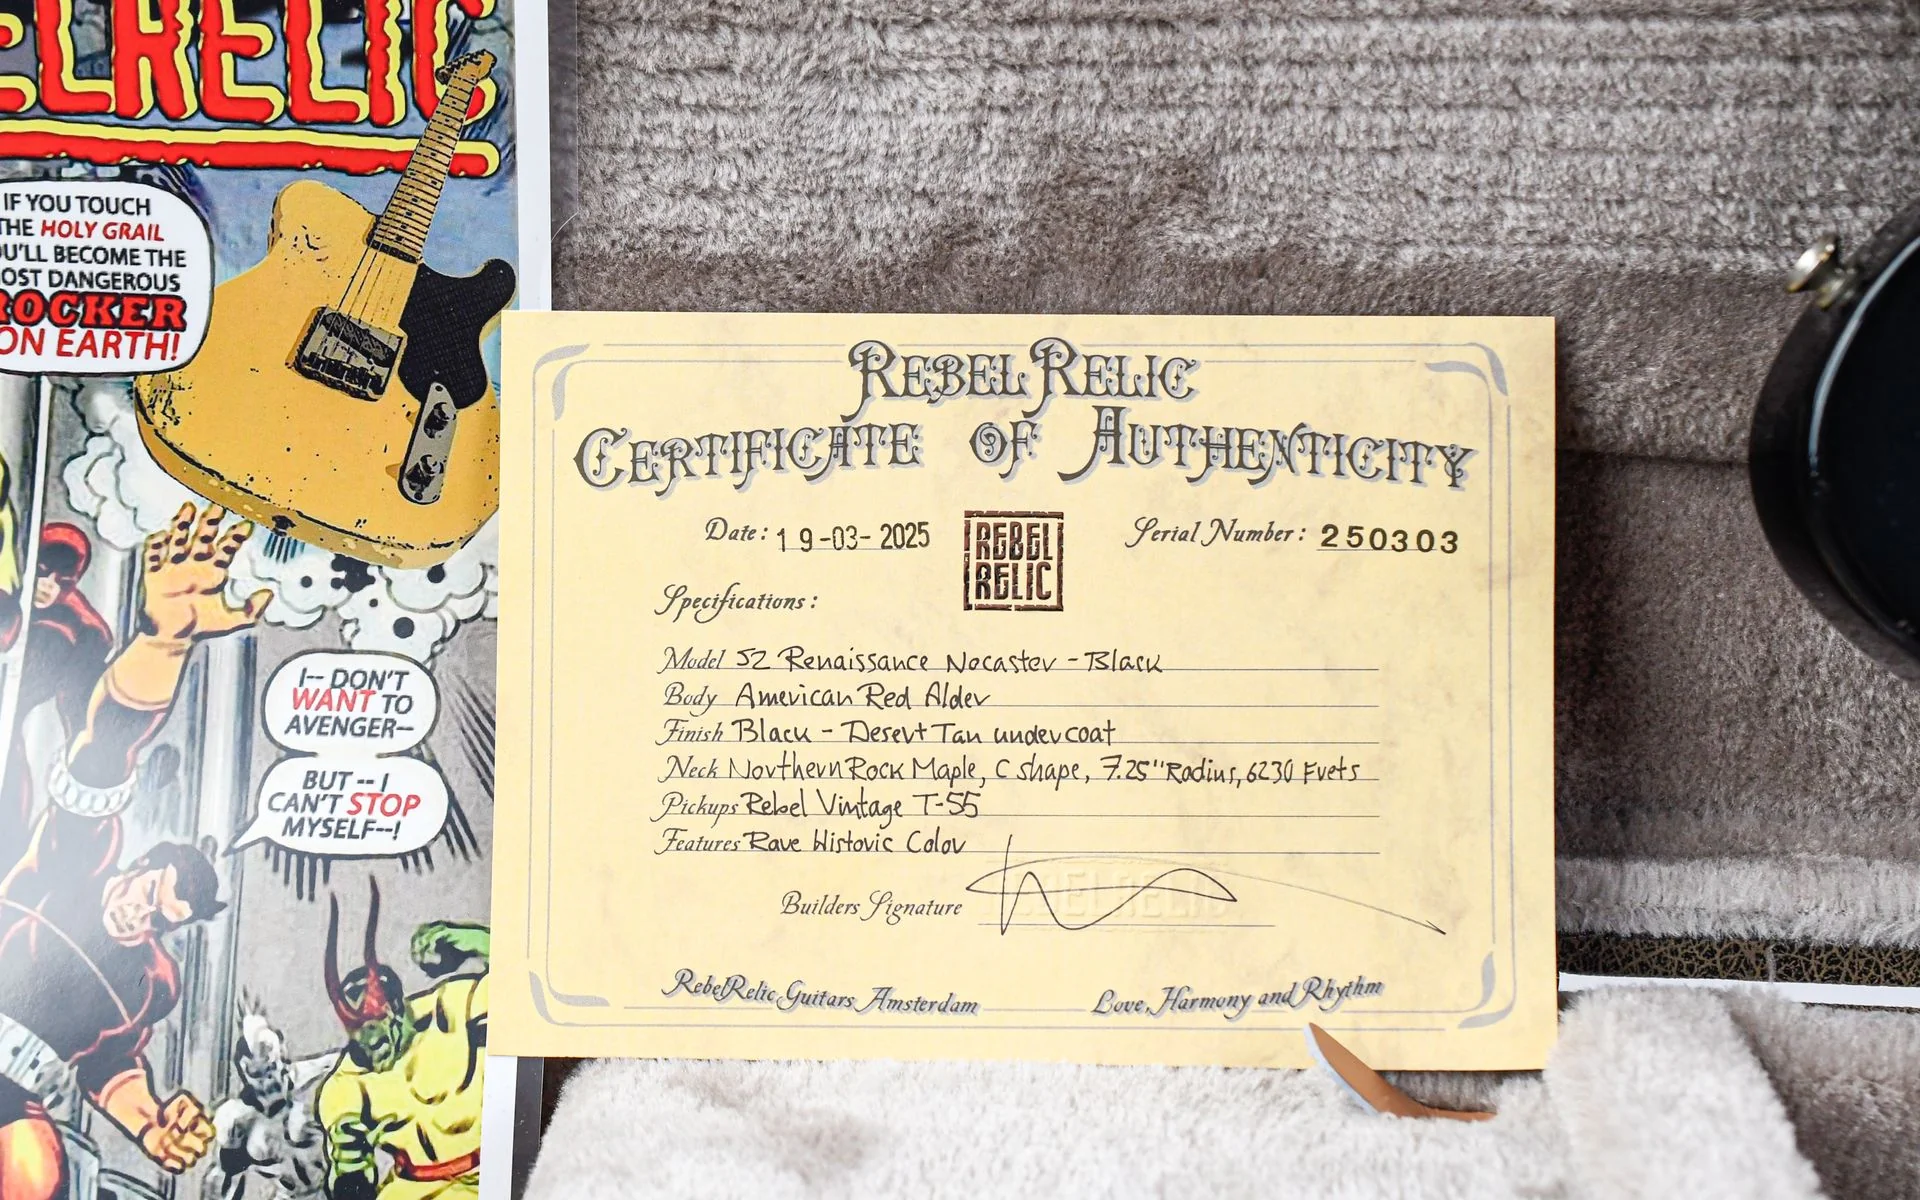 ELRELIC
IF YOU TOUCH
THE HOLY GRAIL
OU'LL BECOME THE
OST DANGEROUS
ROCKER
ON EARTH!
I-- DON'T
WANT TO
AVENGER--
BUT -- I
CAN'T STOP
MYSELF--!
REBEL RELIC
CERTIFICATE OF AUTHENTICITY
Date: 19-03-2025
REBEL
RELIC
Serial Number: 250303
Specifications:
Model 52 Renaissance Nocaster - Black
Body American Red Alder
Finish Black - Desert Tan undercoat
Neck Northern Rock Maple, C shape, 7.25" Radius, 6230 Frets
Pickups Rebel Vintage T-55
Features Rare Historic Color
Builders Signature
REBELRELIC
RebelRelic Guitars Amsterdam
Love, Harmony and Rhythm